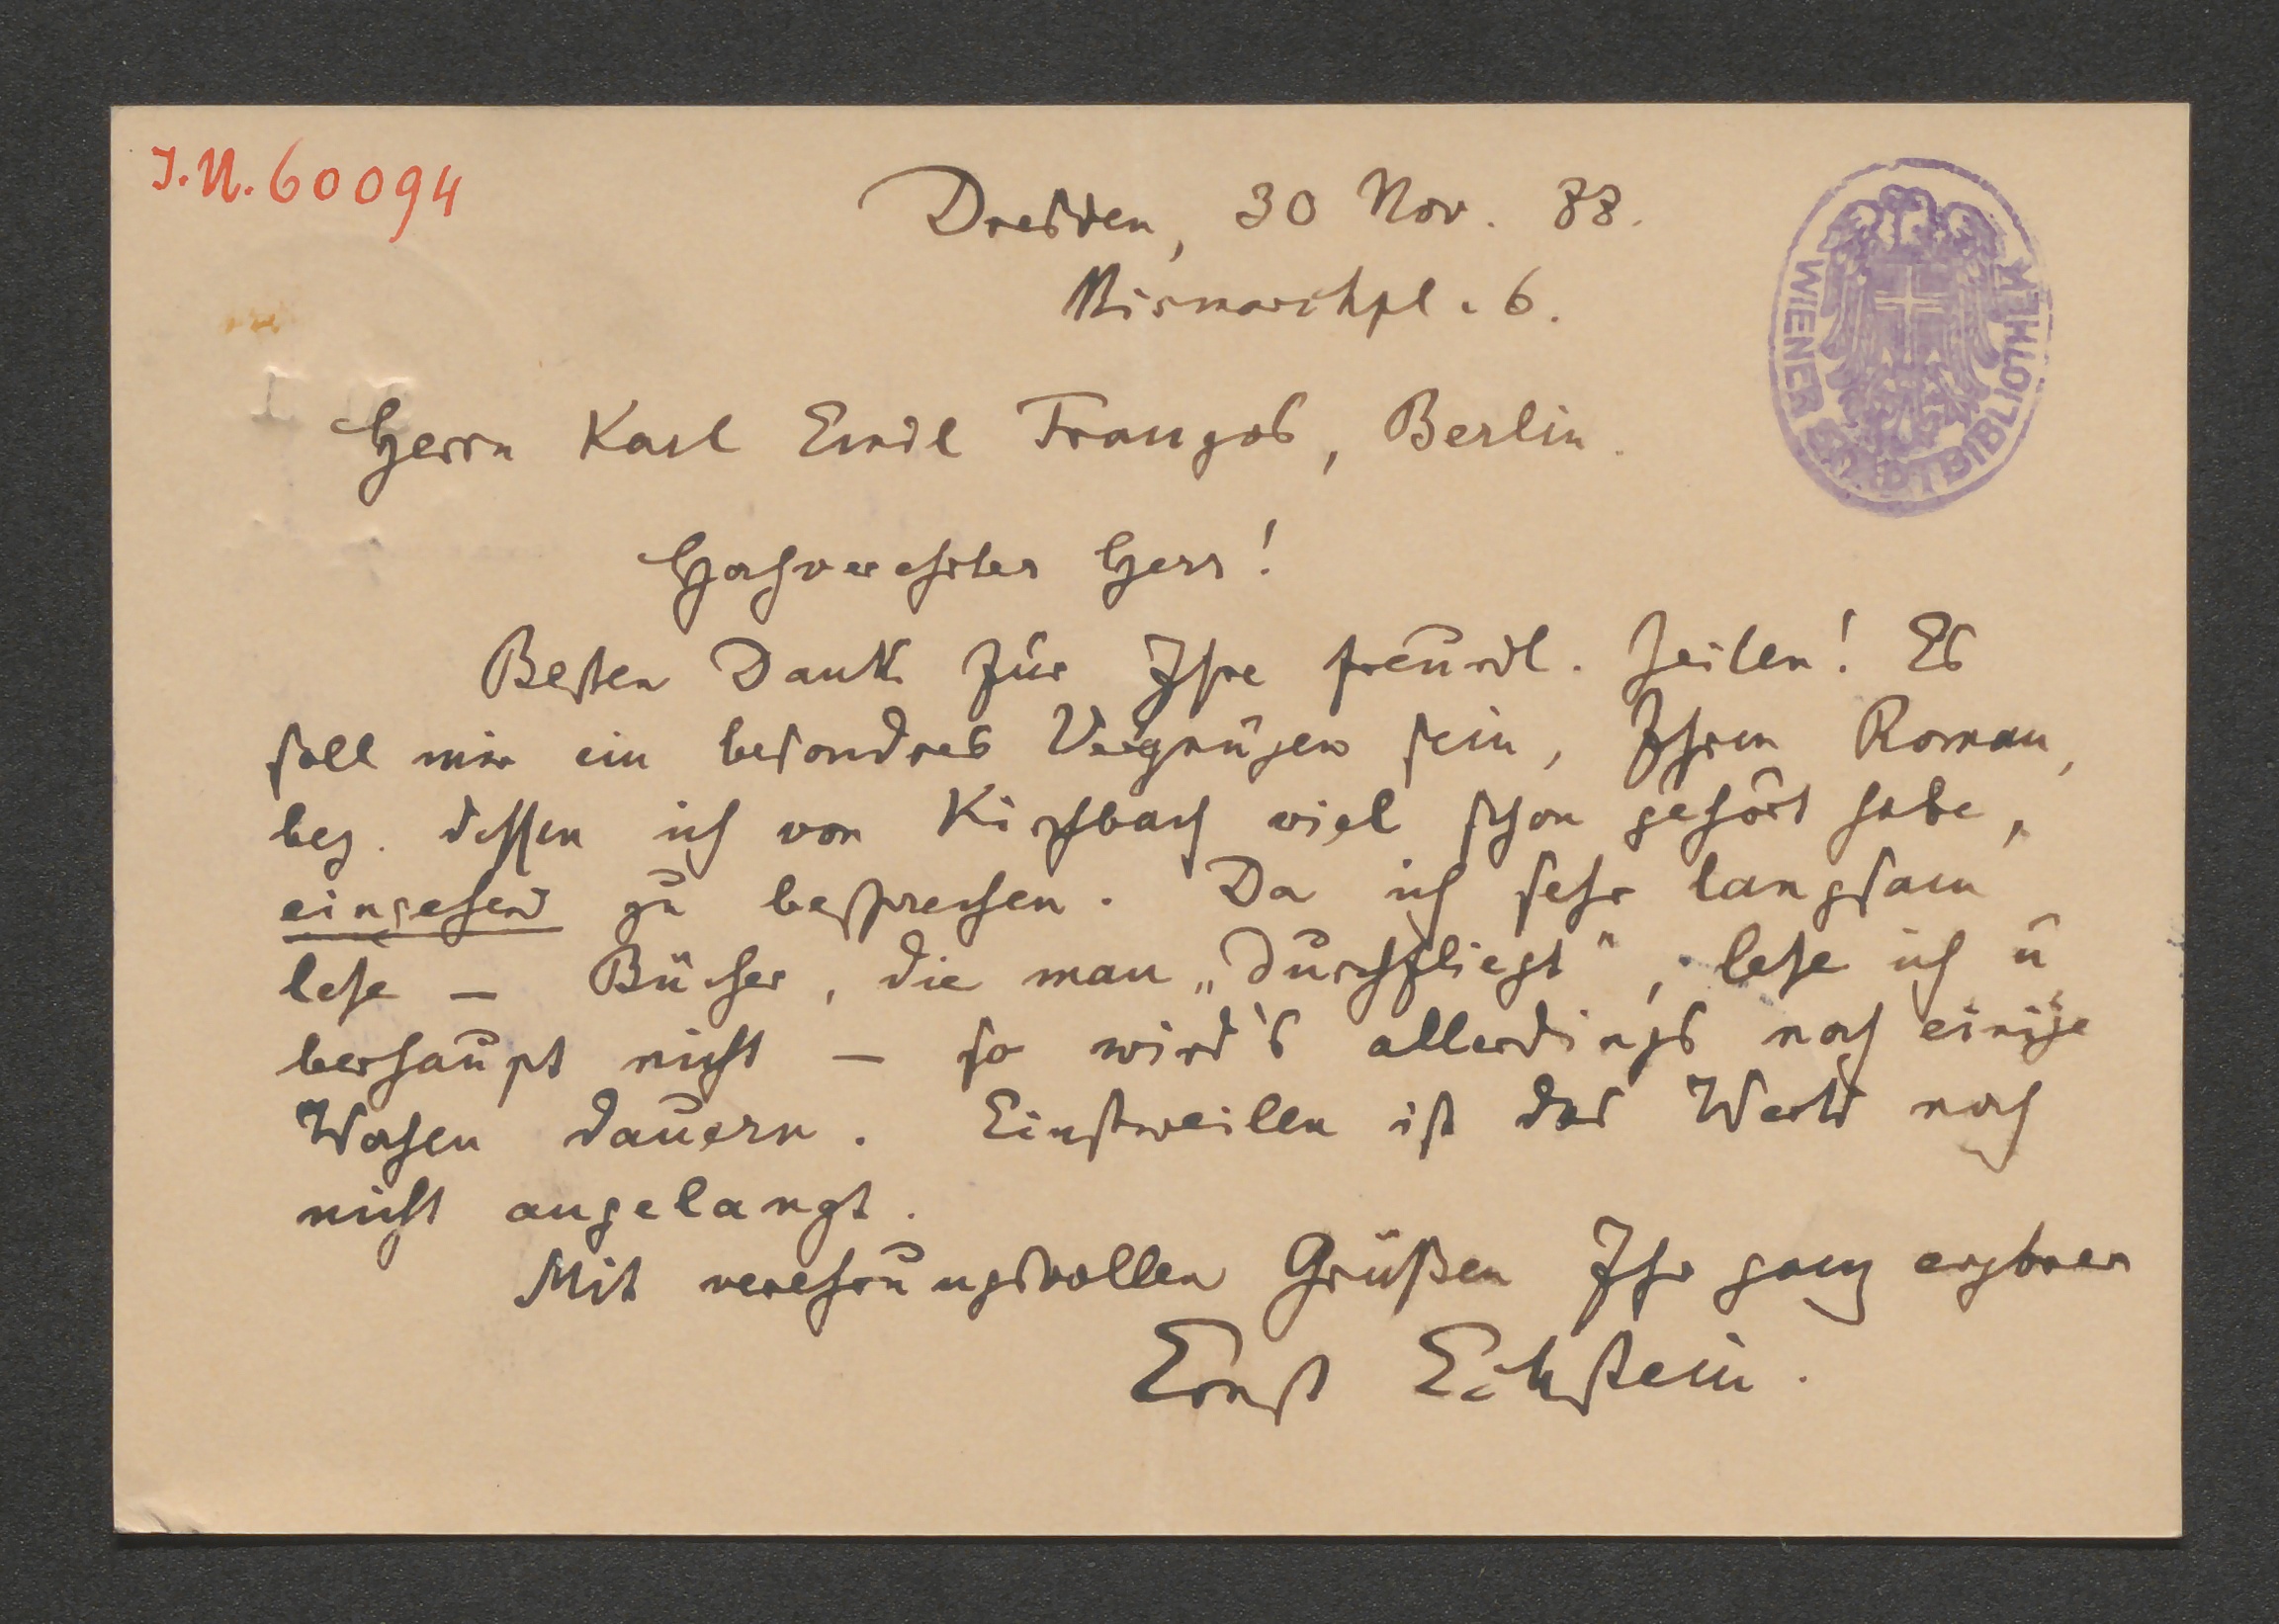 I.N. 60094
Dresden, 30 Nov. 88.
Bismarckpl. 6.
WIENER STADTBIBLIOTHEK
Herrn Karl Emil Franzos, Berlin.
Hochverehrter Herr!
Besten Dank für Ihre freundl. Zeilen! Es
soll mir ein besondres Vergnügen sein, Ihren Roman,
bez. dessen ich von Kirchbach viel schon gehört habe,
eingehend zu besprechen. Da ich sehr langsam
lese – Bücher, die man „durchfliegt“, lese ich ü
berhaupt nicht – so wird's allerdings noch einige
Wochen dauern. Einstweilen ist das Werk noch
nicht angelangt.
Mit verehrungsvollen Grüßen Ihr ganz ergbner
Ernst Eckstein.